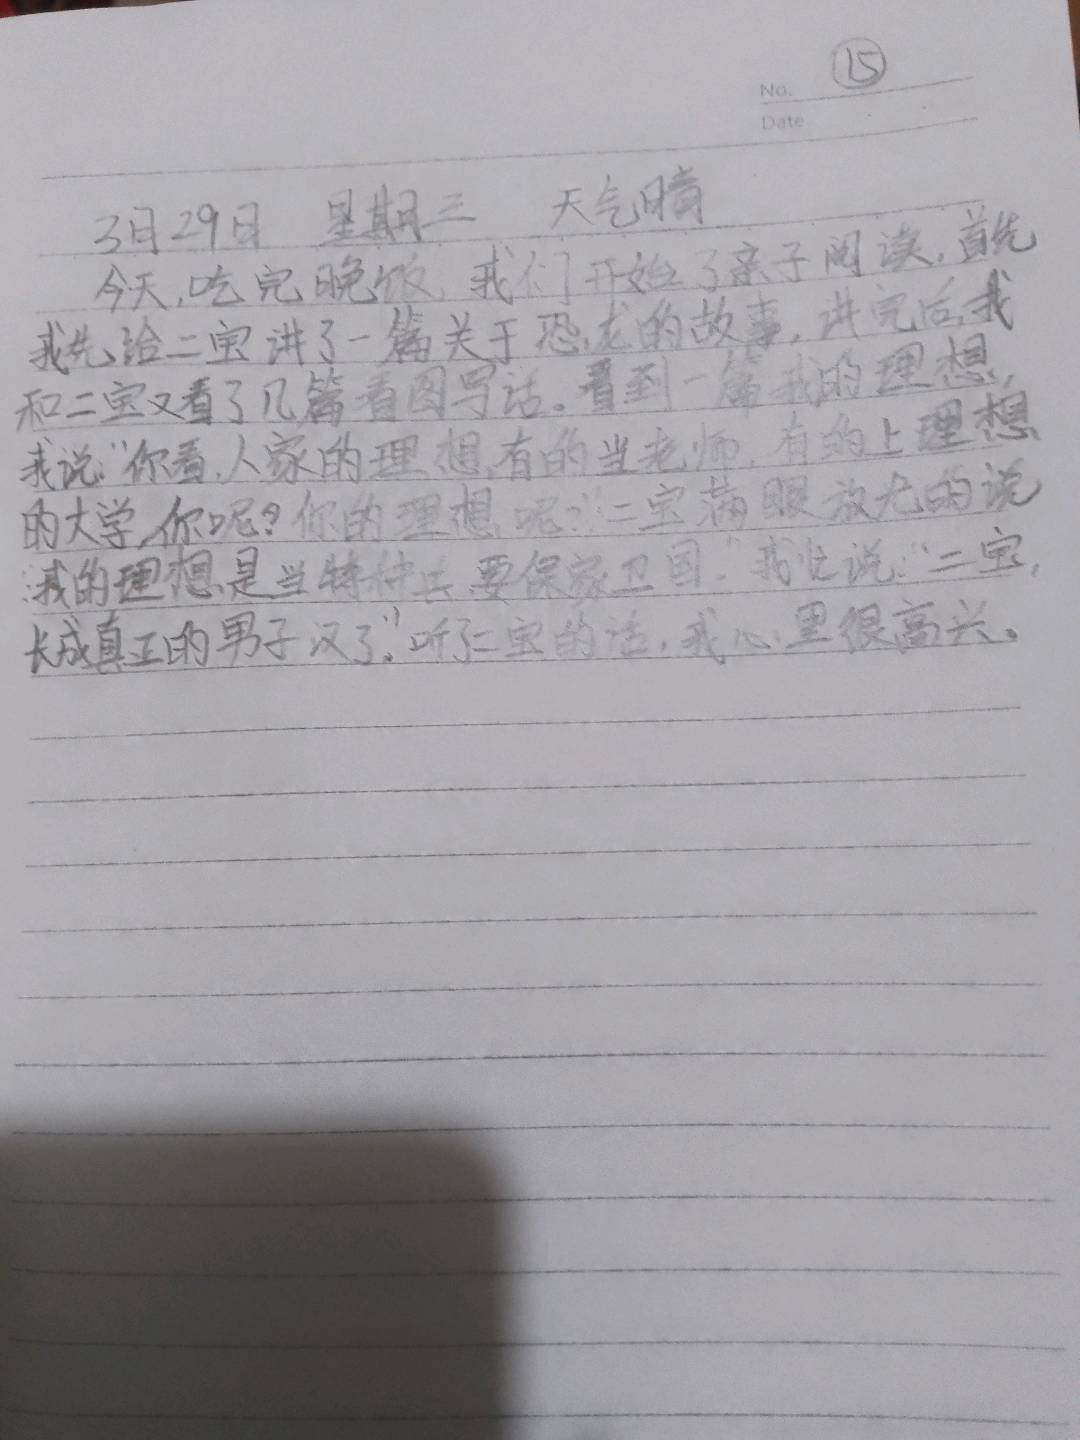 No. 15
Date
3月29日 星期三 天气晴
今天,吃完晚饭,我们开始了亲子阅读,首先
我先给二宝讲了一篇关于恐龙的故事,讲完后,我
和二宝又看了几篇看图写话。看到一篇我的理想,
我说:“你看,人家的理想,有的当老师,有的上理想
的大学,你呢?你的理想呢?”二宝满眼放光的说
:我的理想是当特种兵,要保家卫国。”我说:“二宝,
长成真正的男子汉了。”听了二宝的话,我心里很高兴。